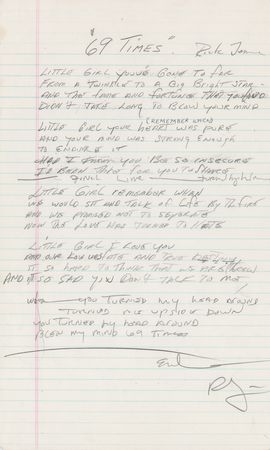 "69 TIMES" Rick Jam
LITTLE GIRL YOU'VE GONE TO FAR
FROM A TWINKLE TO A BIG BRIGHT STAR
AND THE FAME AND FORTUNE THAT YOU FOUND
DIDN'T TAKE LONG TO BLOW YOUR MIND
(REMEMBER WHEN)
LITTLE GIRL YOUR HEART WAS PURE
AND YOUR MIND WAS STRONG ENOUGH
TO ENDURE IT
HAD I KNOWN YOU'D BE SO INSECURE
I'D BEEN THERE FOR YOU
FINAL LINE
LITTLE GIRL REMEMBER WHEN
WE WOULD SIT AND TALK OF LIFE BY THE FIRE
AND WE PLANNED NOT TO SEPARATE
NOW THE LOVE HAS TURNED TO HATE
LITTLE GIRL I LOVE YOU
AND OUR LOVE WAS FATE AND TRUE
IT SO HARD TO THINK THAT WE ARE THROUGH
AND IT SO SAD YOU DON'T TALK TO ME
YOU TURNED MY HEAD AROUND
TURNED ME UPSIDE DOWN
YOU TURNED MY HEAD AROUND
BLEW MY MIND 69 TIMES
End